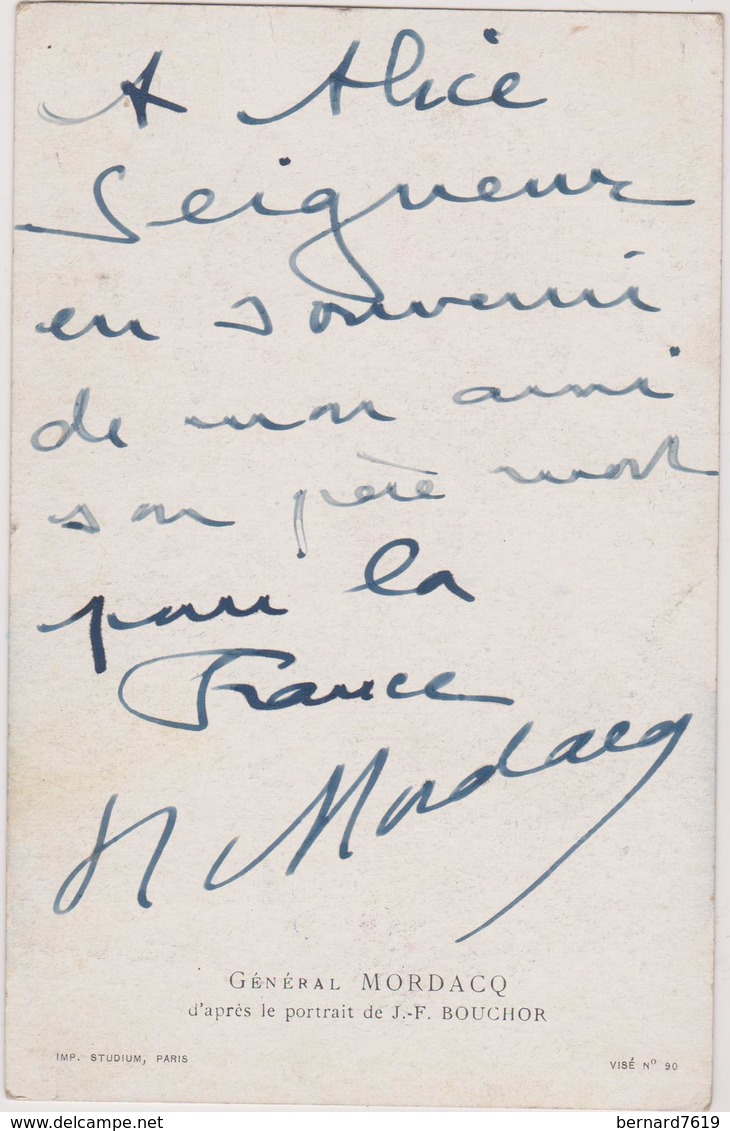 A Alice
Seigneur
en souvenir
de mon ami
son père mort
pour la
France
H Mordacq
GÉNÉRAL MORDACQ
d'après le portrait de J.-F. BOUCHOR
IMP. STUDIUM, PARIS
VISÉ Nº 90
bernard7619